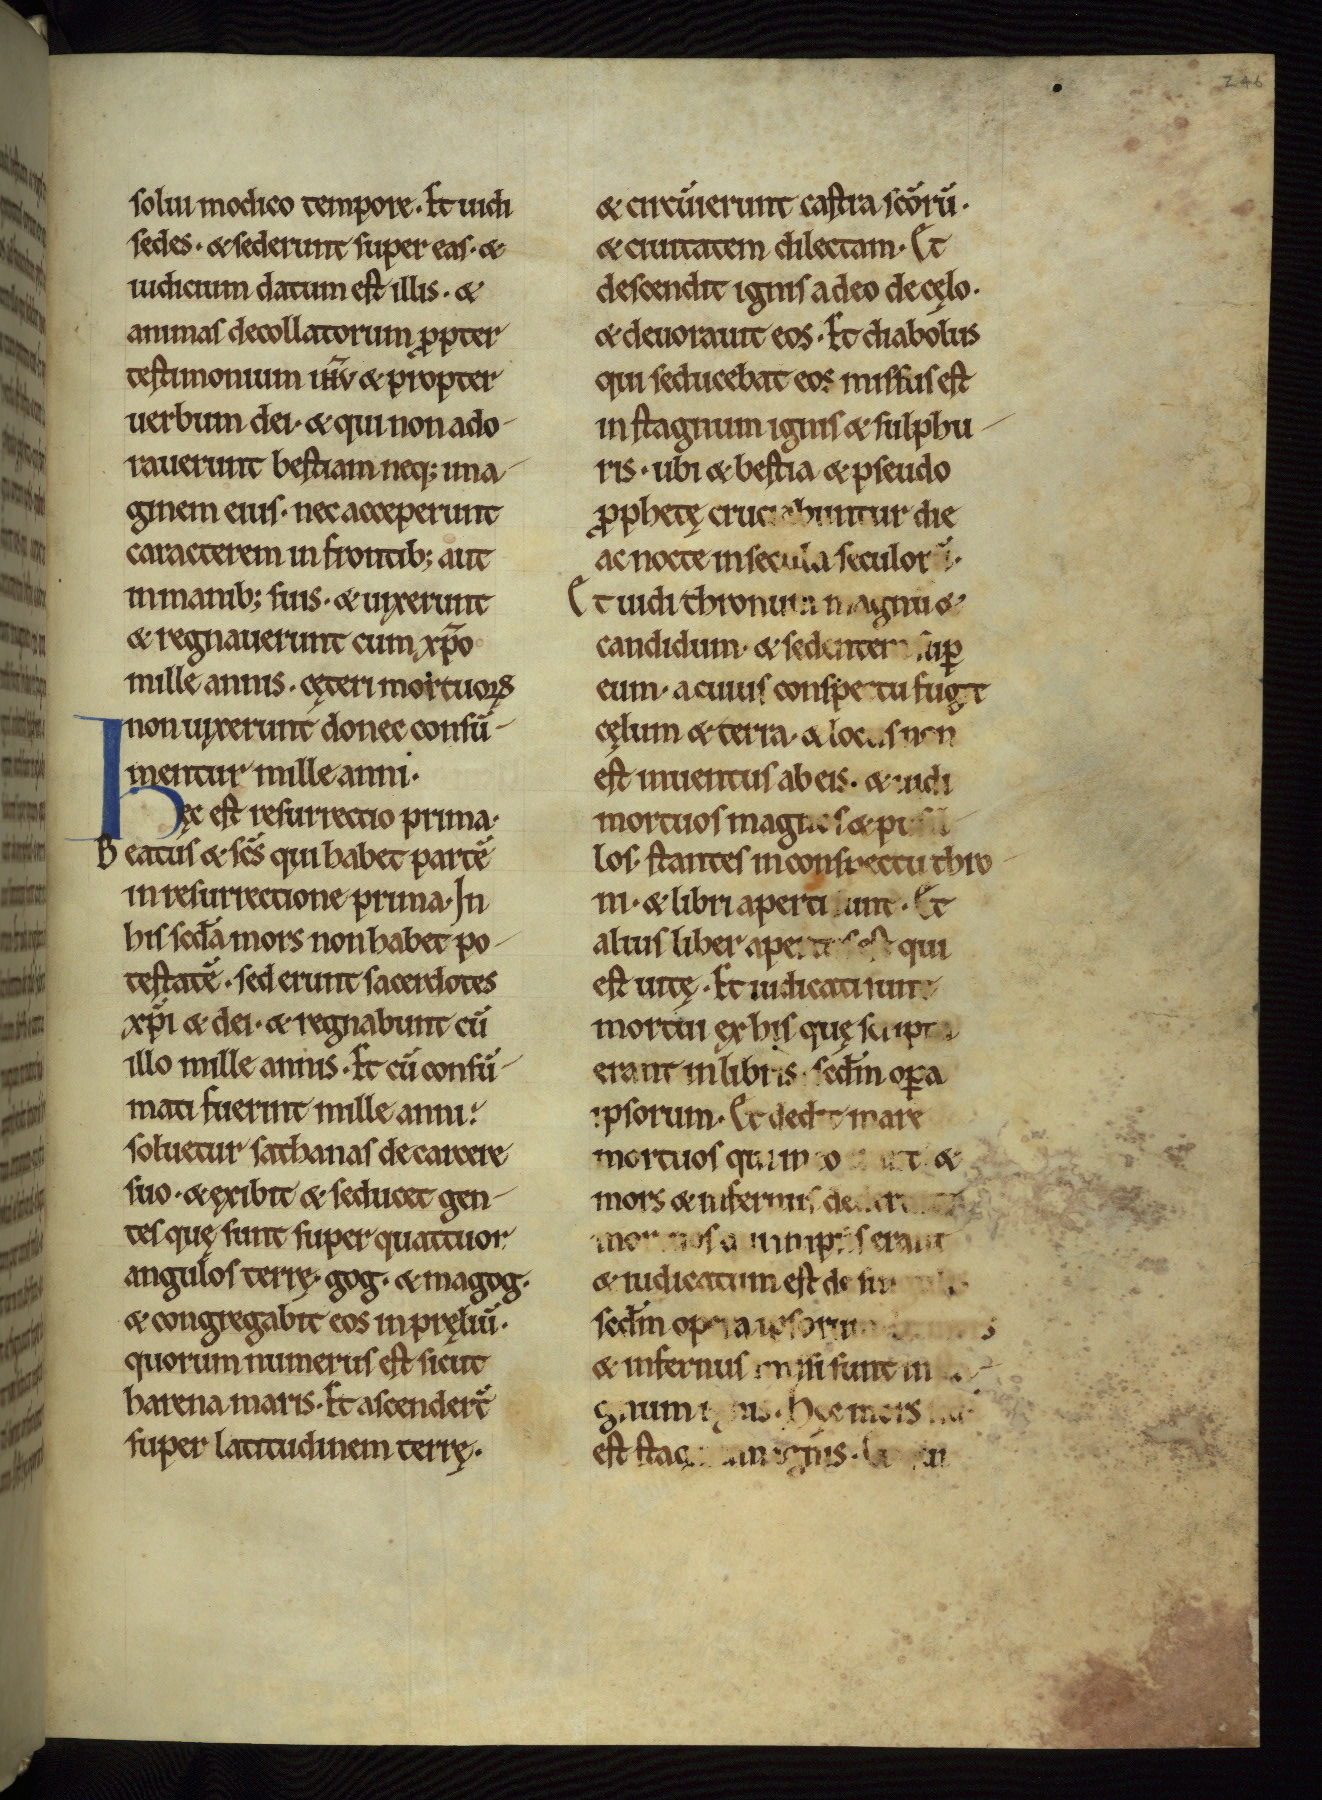 246
solui modico tempore. Et uidi
sedes. & sederunt super eas. &
iudicium datum est illis. &
animas decollatorum ꝓpter
testimonium iħv & propter
uerbum dei. & qui non ado-
rauerunt bestiam neq; ima-
ginem eius. nec acceperunt
caracterem in frontib; aut
in manib; suis. & uixerunt
& regnauerunt cum xp̄o
mille annis. cęteri mortuoꝝ
non uixerunt donec consū-
mentur mille anni.
Hęc est resurrectio prima.
Beatus & scs̄ qui habet partē
in resurrectione prima. In
his secd̄a mors non habet po-
testatē. sed erunt sacerdotes
xp̄i & dei. & regnabunt cū
illo mille annis. Et cū consū-
mati fuerint mille anni:
soluetur sathanas de carcere
suo. & exibit & seducet gen-
tes quę sunt super quattuor
angulos terrę. gog. & magog.
& congregabit eos in pręliū.
quorum numerus est sicut
harena maris. Et ascendert̄
super latitudinem terrę.
& circūierunt castra scōrū.
& ciuitatem dilectam. Et
descendit ignis a deo de cęlo.
& deuorauit eos. Et diabolus
qui seducebat eos missus est
in stagnum ignis & sulphu-
ris. ubi & bestia & pseudo
ꝓphetę cruciabuntur die
ac nocte in secula seculorū.
Et uidi thronum magnū &
candidum. & sedentem suꝑ
eum. a cuius conspectu fugit
cęlum & terra. & locus non
est inuentus ab eis. & uidi
mortuos magnos & pusil
los. stantes in conspectu thro-
ni. & libri aperti sunt. Et
alius liber apertus est qui
est uitę. Et iudicati sunt
mortui ex his quę scripta
erant in libris. secd̄m oꝑa
ipsorum. Et dedit mare
mortuos qui in eo &
mors & infernus dederunt
mortuos qui in ipsis erant
& iudicatum est de sin
secd̄m opera ipsorum
& infernus missi sunt in
gnum ignis. Hęc mors
est stagnum ignis.